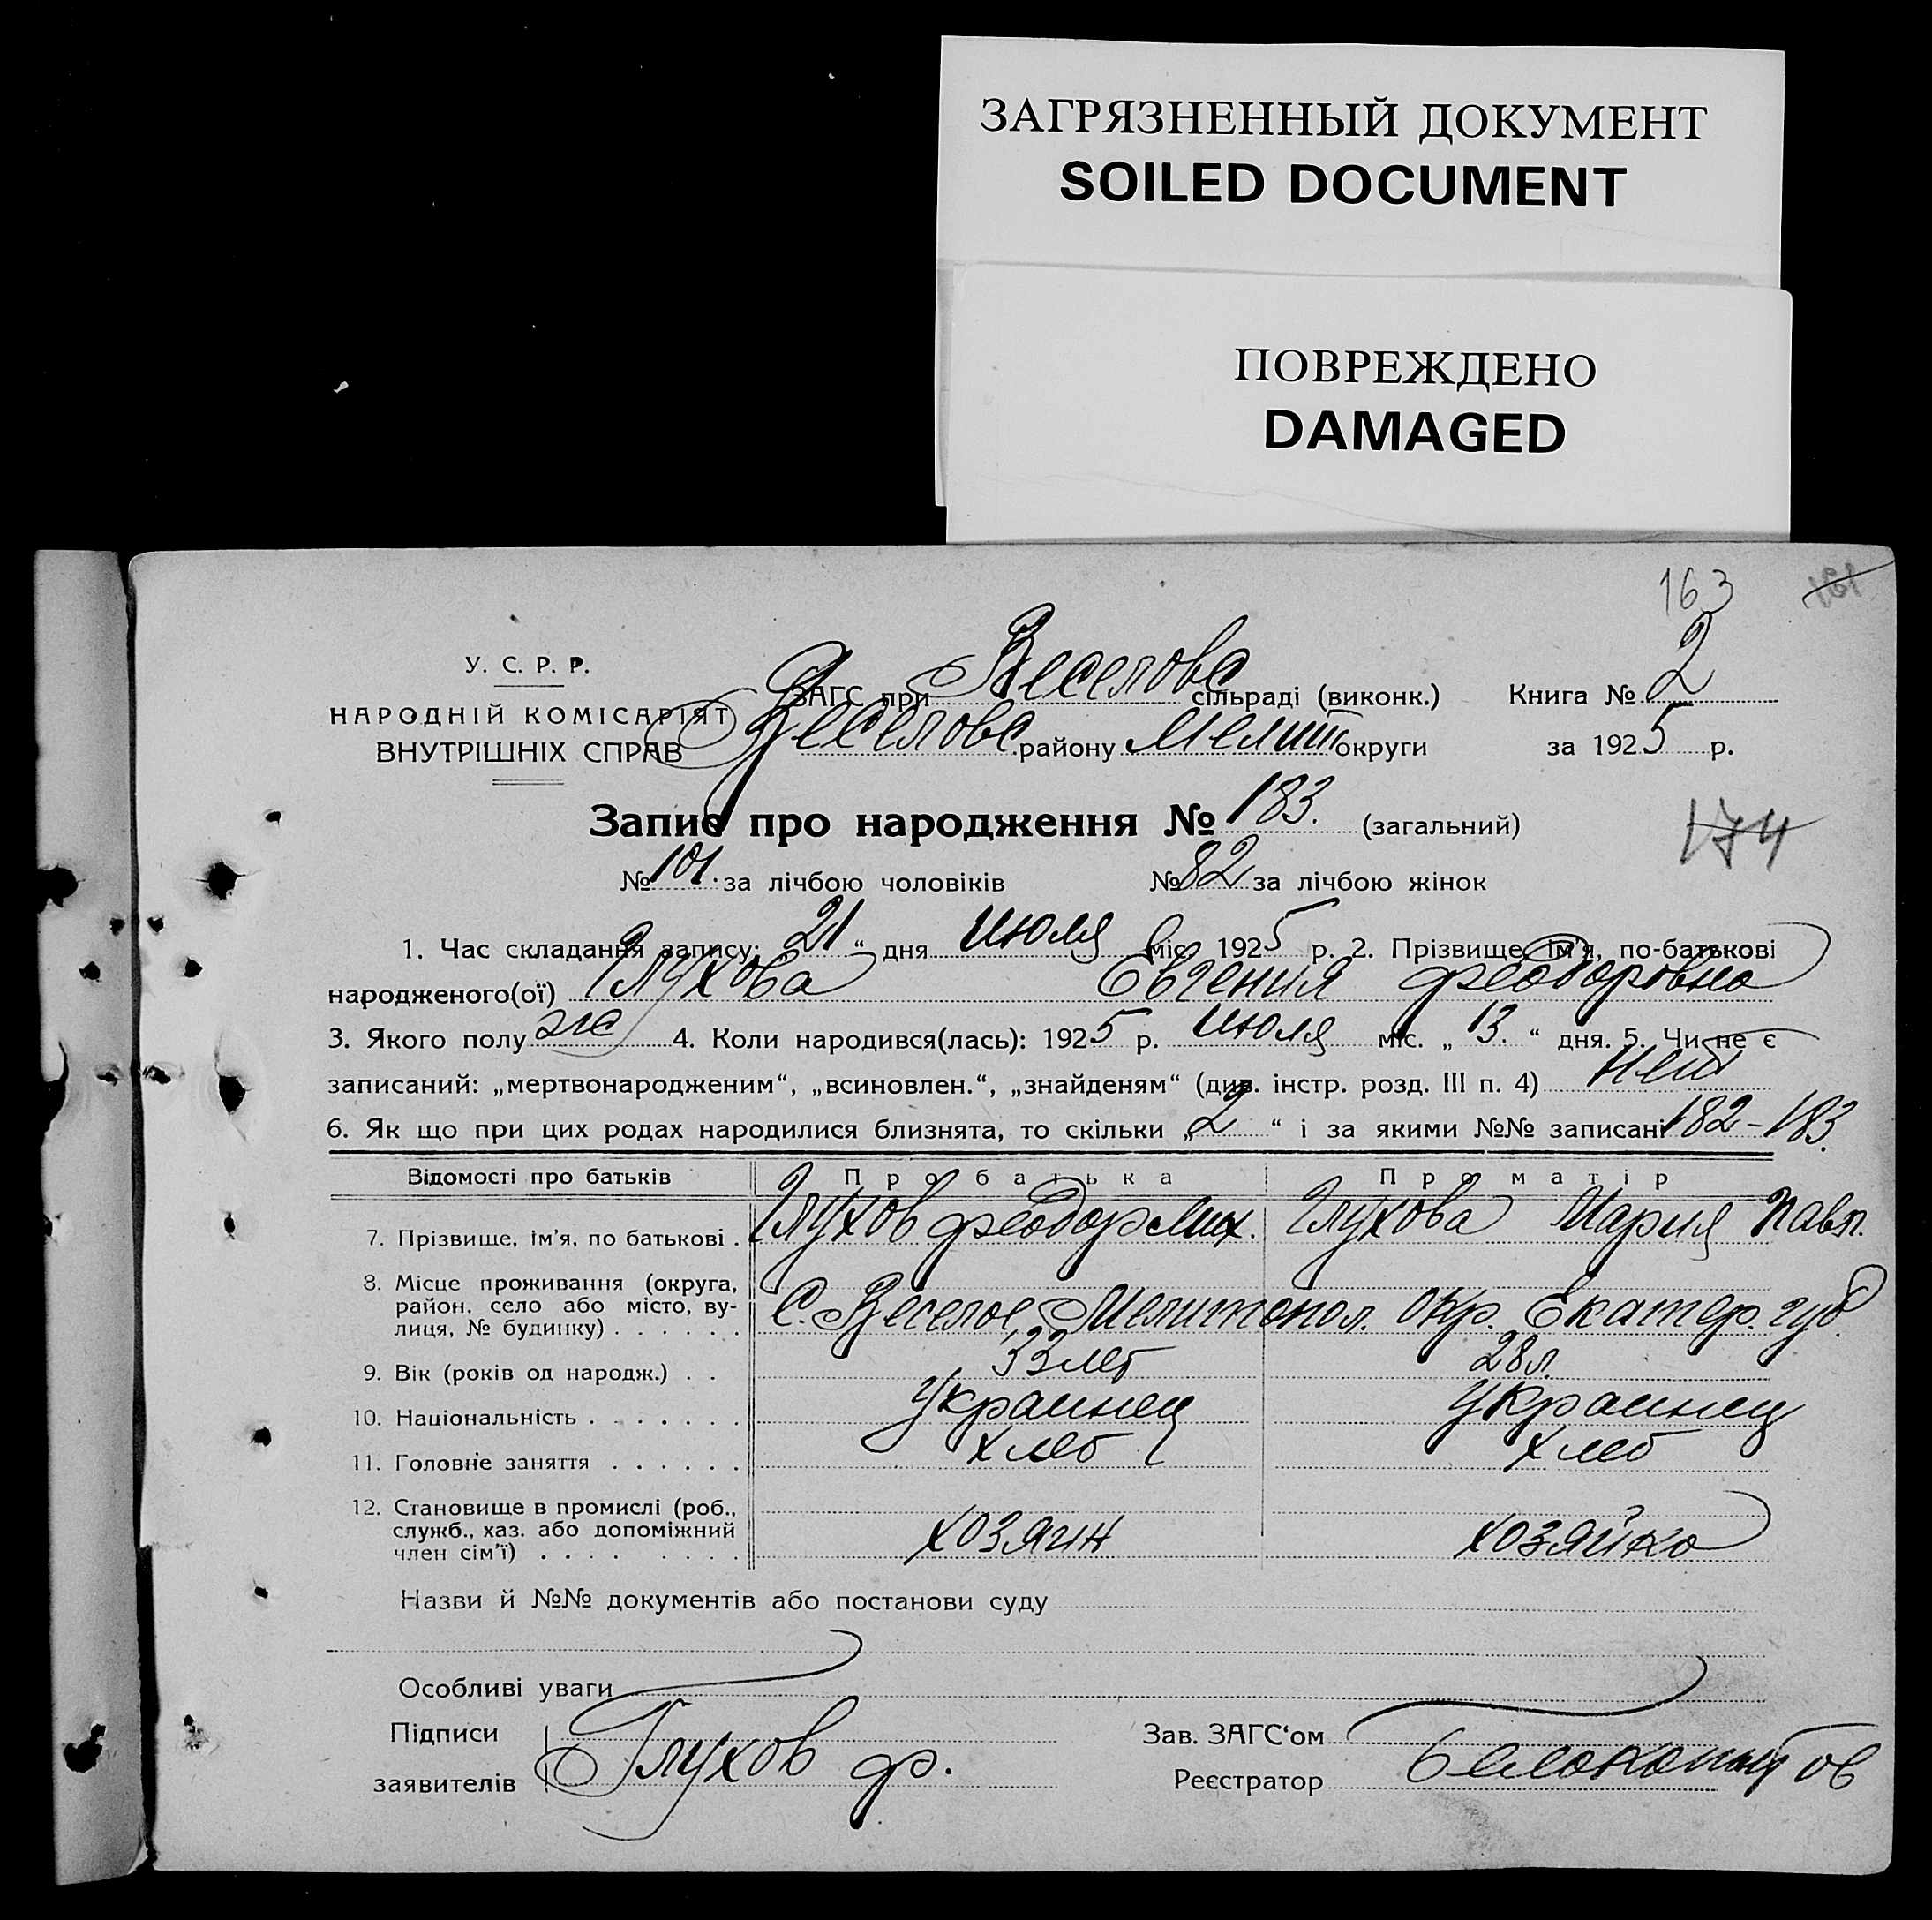 ЗАГРЯЗНЕННЫЙ ДОКУМЕНТ
SOILED DOCUMENT
ПОВРЕЖДЕНО
DAMAGED
163
У. С. Р. Р.
НАРОДНІЙ КОМІСАРІЯТ
ВНУТРІШНІХ СПРАВ
ЗАГС при Веселовс сільраді (виконк.) Книга № 2
Веселовс району Мелит округи за 1925 р.
Запис про народження № 183. (загальний)
174
№ 101. за лічбою чоловіків № 82 за лічбою жінок
1. Час складання запису: 21 “ дня Июля міс. 1925 р. 2. Прізвище, ім’я, по-батькові
народженого(ої) Глухова Евгения Феодоровна
3. Якого полу же 4. Коли народився(лась): 1925 р. Июля міс. „ 13. “ дня. 5. Чи не є
записаний: „мертвонародженим“, „всиновлен.“, „знайденям“ (див. інстр. розд. III п. 4) нет
6. Як що при цих родах народилися близнята, то скільки „ 2 “ і за якими №№ записані 182-183.
Відомості про батьків Про батька Про матір
7. Прізвище, ім’я, по батькові . Глухов Феодор Мих. Глухова Мария Павл.
8. Місце проживання (округа,
район, село або місто, ву-
лиця, № будинку) . . . . . . С. Веселое Мелитопол. окр. Екатер. губ.
9. Вік (років од народж.) . . 33 лет 28 л.
10. Національність . . . . . . . Украинец Украинец
11. Головне заняття . . . . . . хлеб хлеб
12. Становище в промислі (роб.,
служб., хаз. або допоміжний
член сім’ї) . . . . . . . . хозяин хозяйка
Назви й №№ документів або постанови суду
Особливі уваги
Підписи
заявителів Глухов Ф.
Зав. ЗАГС‘ом
Реєстратор Белокопытов